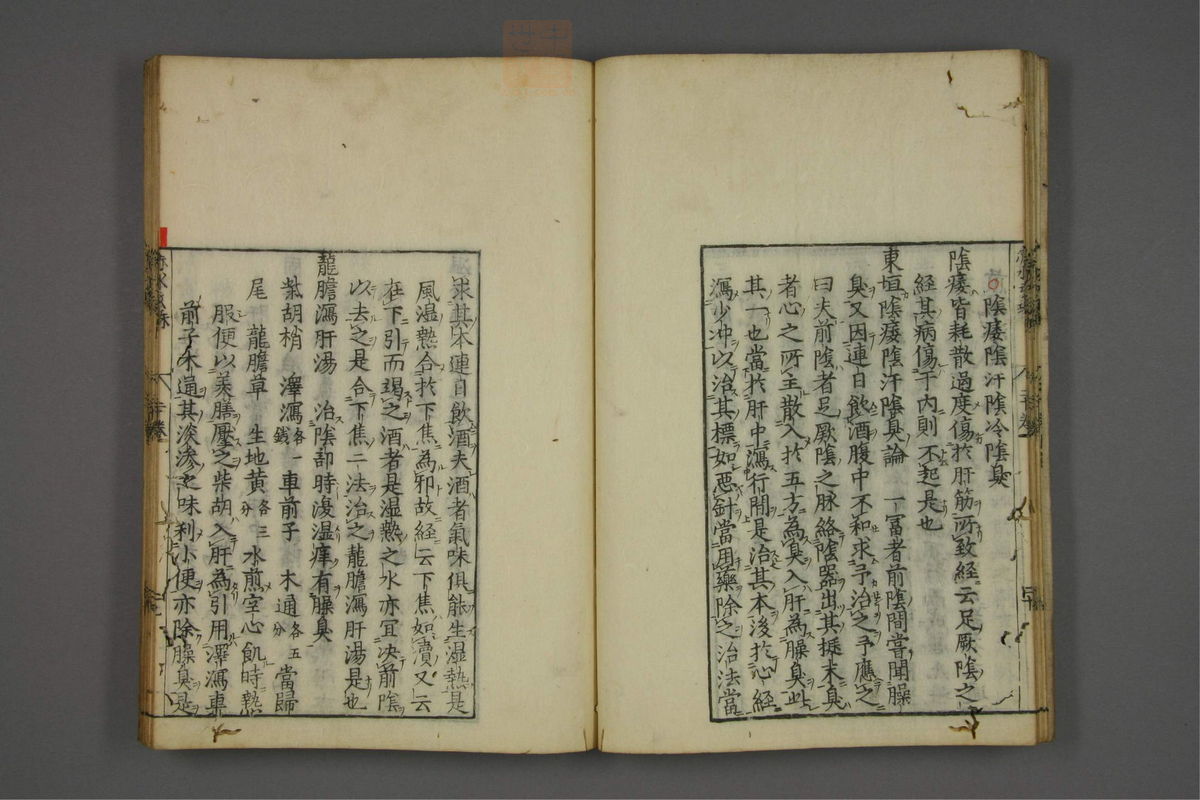 ○陰痿陰汗陰冷陰臭
陰痿皆耗散過度傷於肝筋所致経云足厥陰之
経其病傷于内則不起是也
東垣陰痿陰汗陰臭論 一冨者前陰間嘗聞臊
臭又因連日飲酒腹中不和求予治之予應之
曰夫前陰者足厥陰之脉絡陰器出其挺末臭
者心之所主散入於五方為臭入肝為臊臭此
其一也當於肝中瀉行間是治其本後於心経
瀉少冲以治其標如悪針當用藥除之治法當
求其本連日飲酒夫酒者氣味俱能生湿熱是
風温熱合於下焦為邪故経云下焦如瀆又云
在下引而竭之酒者是湿熱之水亦宜决前陰
以去之是合下焦二法治之龍膽瀉肝湯是也
龍膽瀉肝湯 治陰部時復湿痒有臊臭
柴胡梢 澤瀉各一錢 車前子 木通各五分 當歸
尾 龍膽草 生地黄各三分 水煎空心飢時熱
服便以美膳壓之柴胡入肝為引用澤瀉車
前子木通其淡渗之味利小便亦除臊臭是